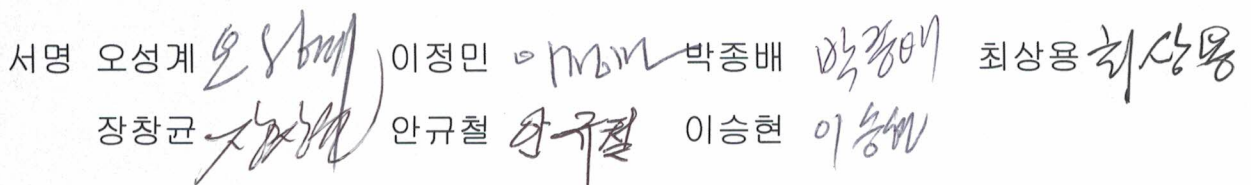 서명 오성계 오성계 이정민 이정민 박종배 박종배 최상용 최상용
장창균 안규철 안규철 이승현 이승현